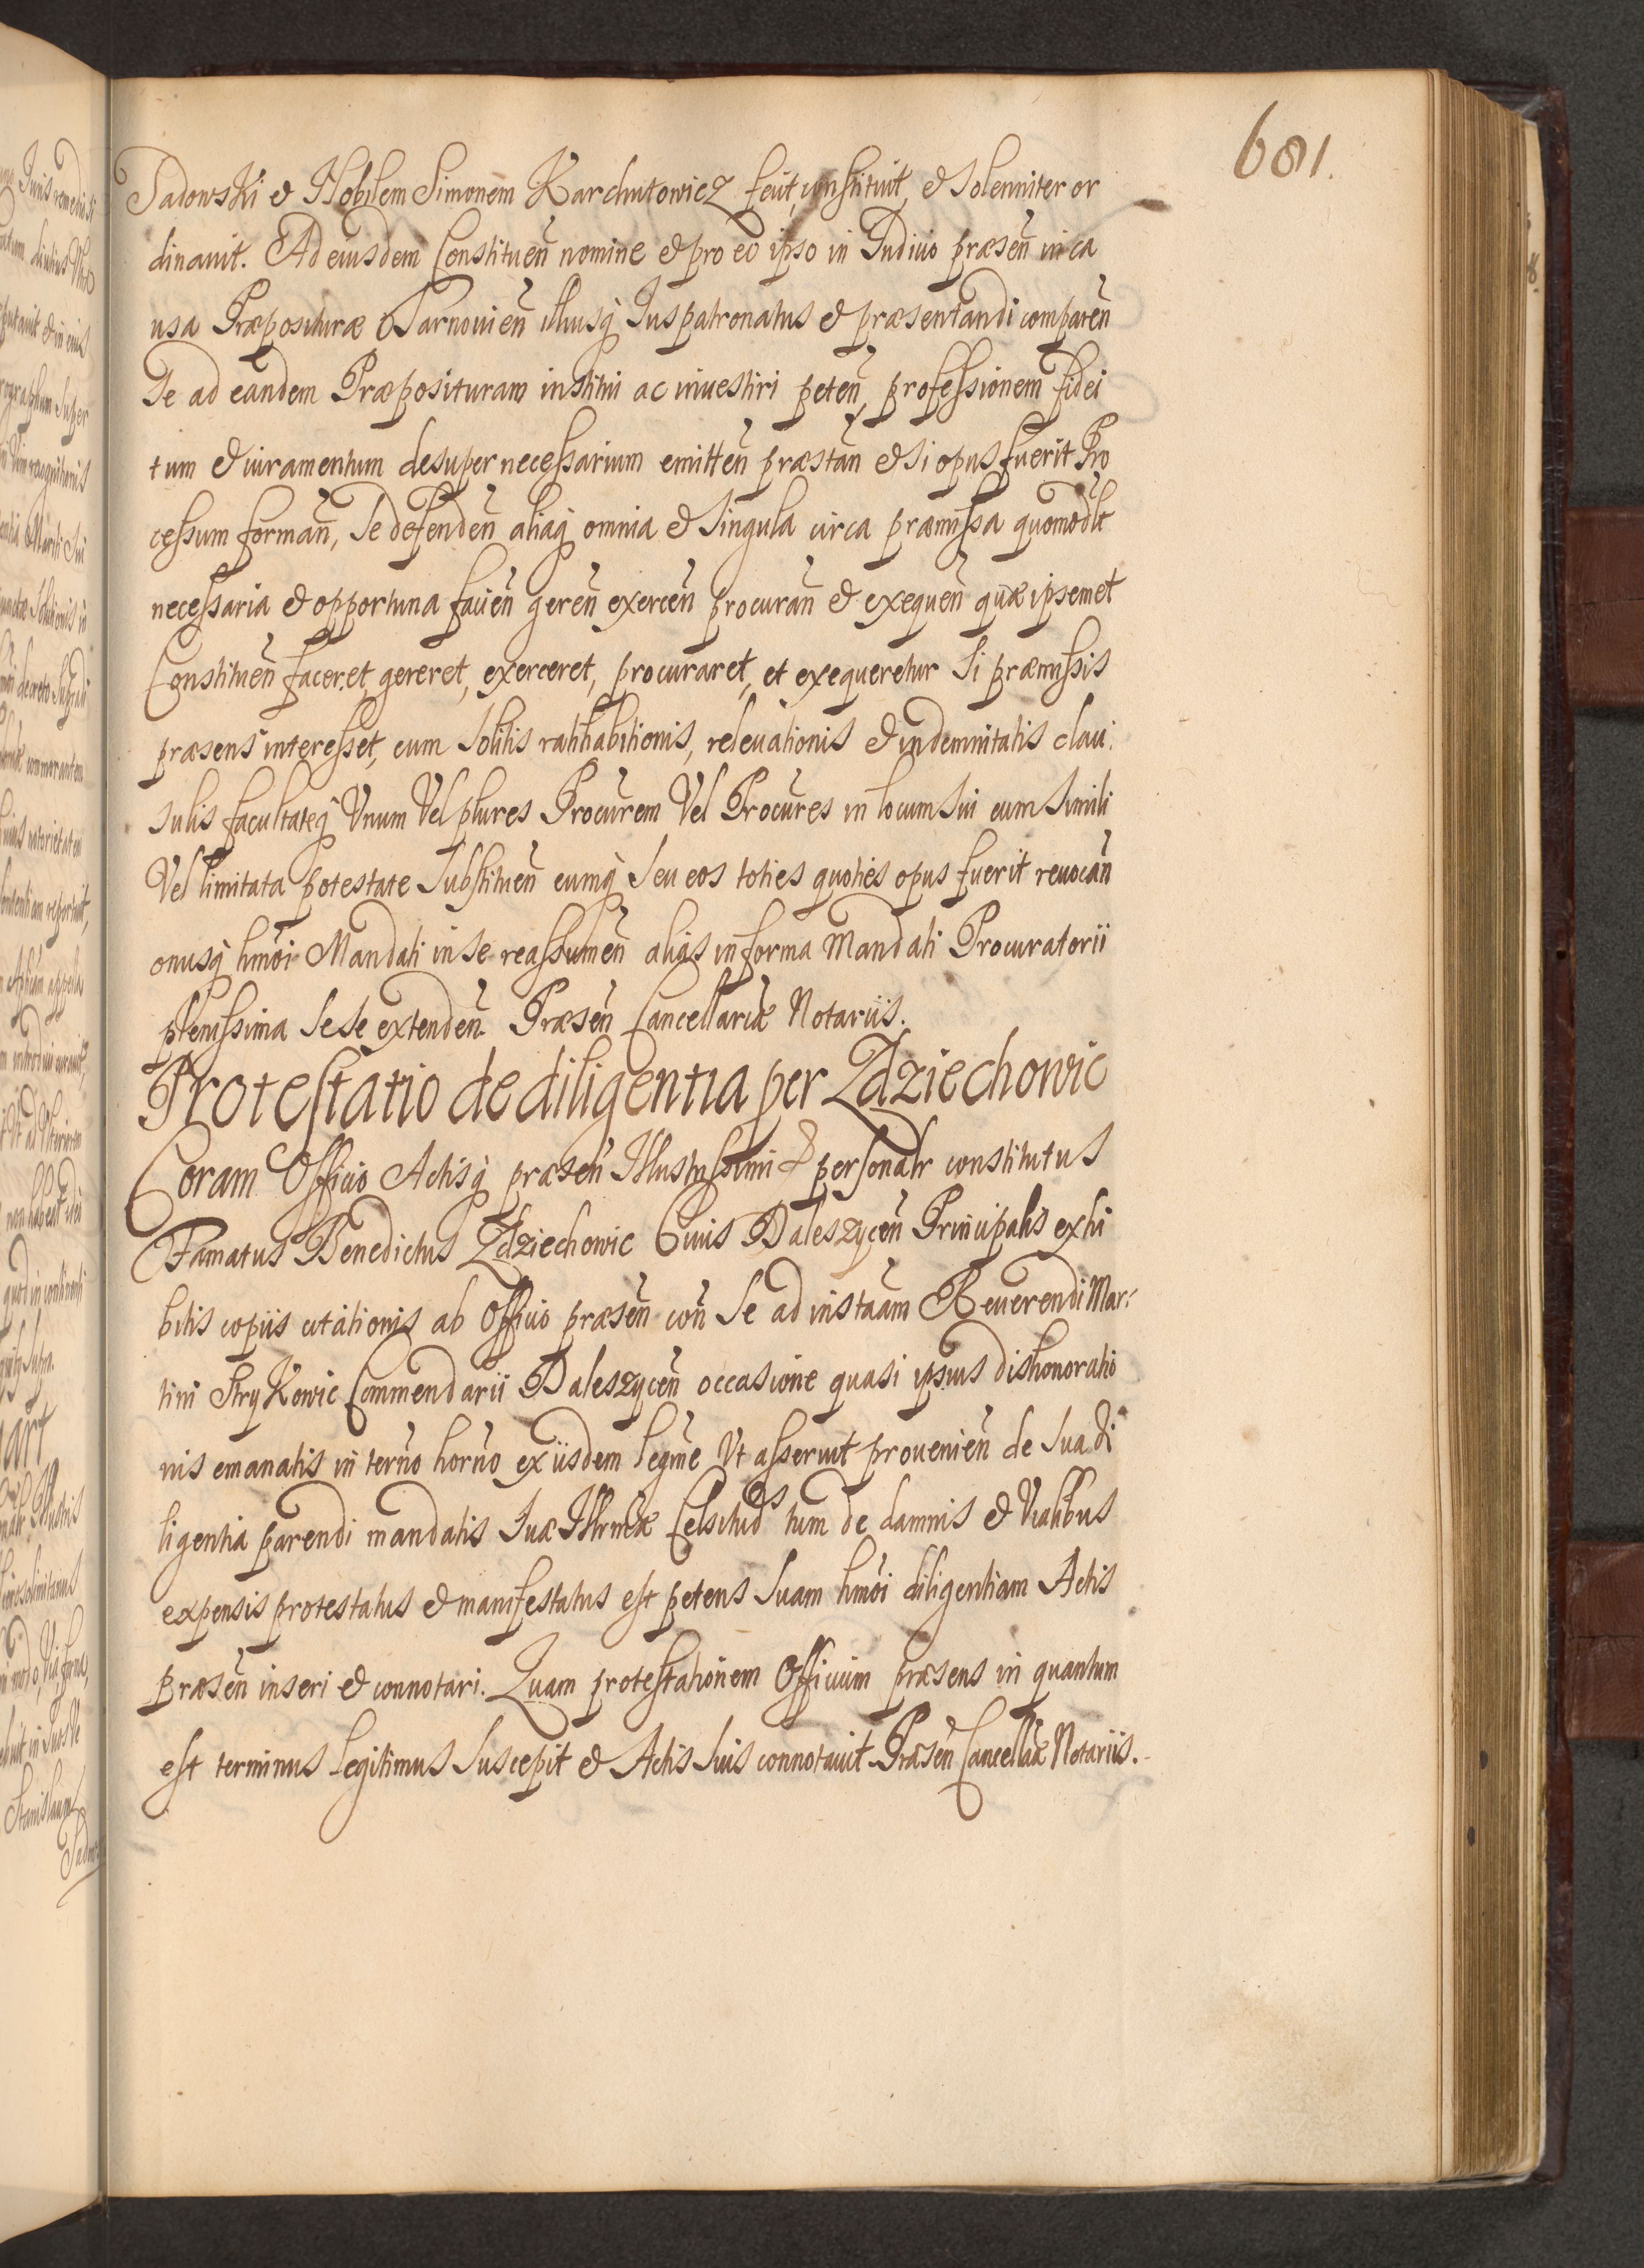 681.
Sadowski & Nobilem Simonem Karchutowicz fecit, constituit, & solenniter or
dinauit. Ad eiusdem Constituen̄ nomine & pro eo ipso in Iudicio præsen̄ in ca
usa Præposituræ Tarnouien̄ illiusq̀ Iuspatronatus & præsentandi comparen̄
Se ad eandem Præposituram institui ac inuestiri peten̄, professionem fidei
tum & iuramentum desuper necessarium emitten̄ præstan̄ & si opus fuerit Pro
cessum forman̄, se defenden̄ aliaq̀ omnia & singula circa præmissa quomodlt
necessaria & opportuna facien̄ geren̄ exercen̄ procuran̄ & exequen̄ quæ ipsemet
Constituen̄ faceret, gereret, exerceret, procuraret, et exequeretur si præmissis
præsens interesset, cum solitis ratihabitionis, releuationis & indemnitatis clau:
sulis facultateq̀ Vnum Vel plures Procurem Vel Procures in locum sui cum simili
Vel limitata potestate substituen̄ eumq̀ seu eos toties quoties opus fuerit reuocan̄
onusq̀ hmōi Mandati in se reassumen̄ alias in forma Mandati Procuratorii
plenissima sese extenden̄. Præsen̄ Cancellariæ Notariis.
Protestatio de diligentia per Zdziechowic
Coram Officio Actisq̀ præsen̄ Illustrissimi & personalr constitutus
Famatus Benedictus Zdziechowic Ciuis Daleszycen̄ Principalis exhi
bitis copiis citationis ab Officio præsen̄ con̄ Se ad instaām Reuerendi Mar:
tini Strykowic Commendarii Daleszycen̄ occasione quasi ipsius dishonoratio
nis emanatis in terno horno ex iisdem legme Vt asseruit prouenien̄ de sua di
ligentia parendi mandatis suæ Illrmæ Celsitudis tum de damnis & Vialibus
expensis protestatus & manifestatus est petens suam hmōi diligentiam Actis
præsen̄ inseri & connotari. Quam protestationem Officium præsens in quantum
est terminus legitimus suscepit & Actis suis connotauit. Præsen̄ Cancellriæ Notariis.